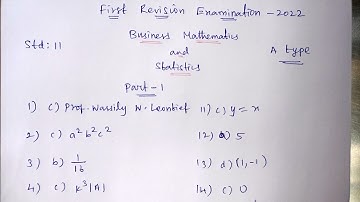 First Revision Examination - 2022
Std: 11
Business Mathematics
and
Statistics
A type
Part - 1
1) c) Prof. Wassily W. Leontief
11) c) y = x
2) c) a²b²c²
12) a) 5
3) b) 1/16
13) d) (1, -1)
4) c) k³|A|
14) c) 0